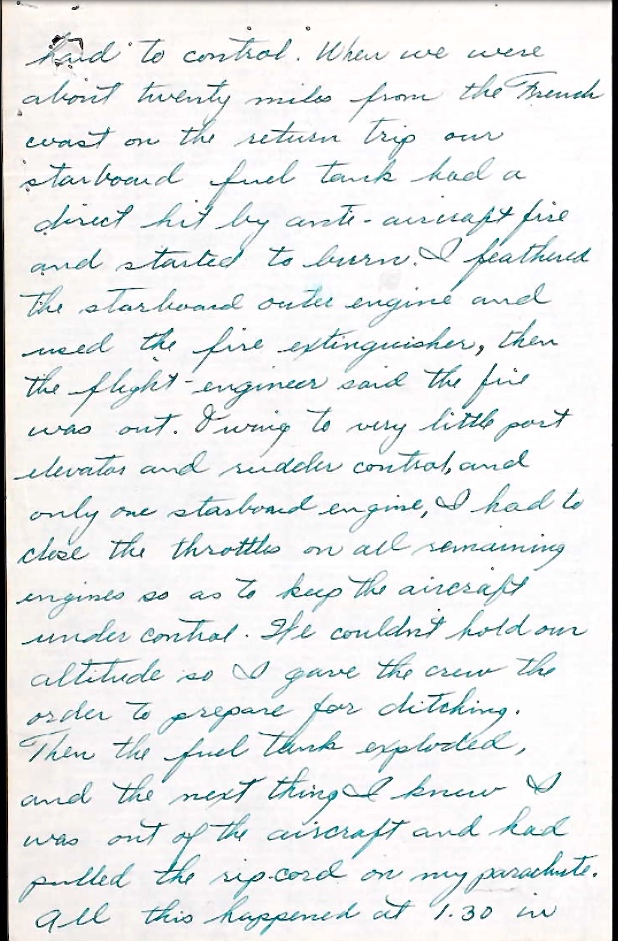 hard to control. When we were
about twenty miles from the French
coast on the return trip our
starboard fuel tank had a
direct hit by anti-aircraft fire
and started to burn. I feathered
the starboard outer engine and
used the fire extinguisher, then
the flight-engineer said the fire
was out. Owing to very little port
elevator and rudder control, and
only one starboard engine, I had to
close the throttles on all remaining
engines so as to keep the aircraft
under control. We couldn't hold our
altitude so I gave the crew the
order to prepare for ditching.
Then the fuel tank exploded,
and the next thing I knew I
was out of the aircraft and had
pulled the rip-cord on my parachute.
All this happened at 1.30 in